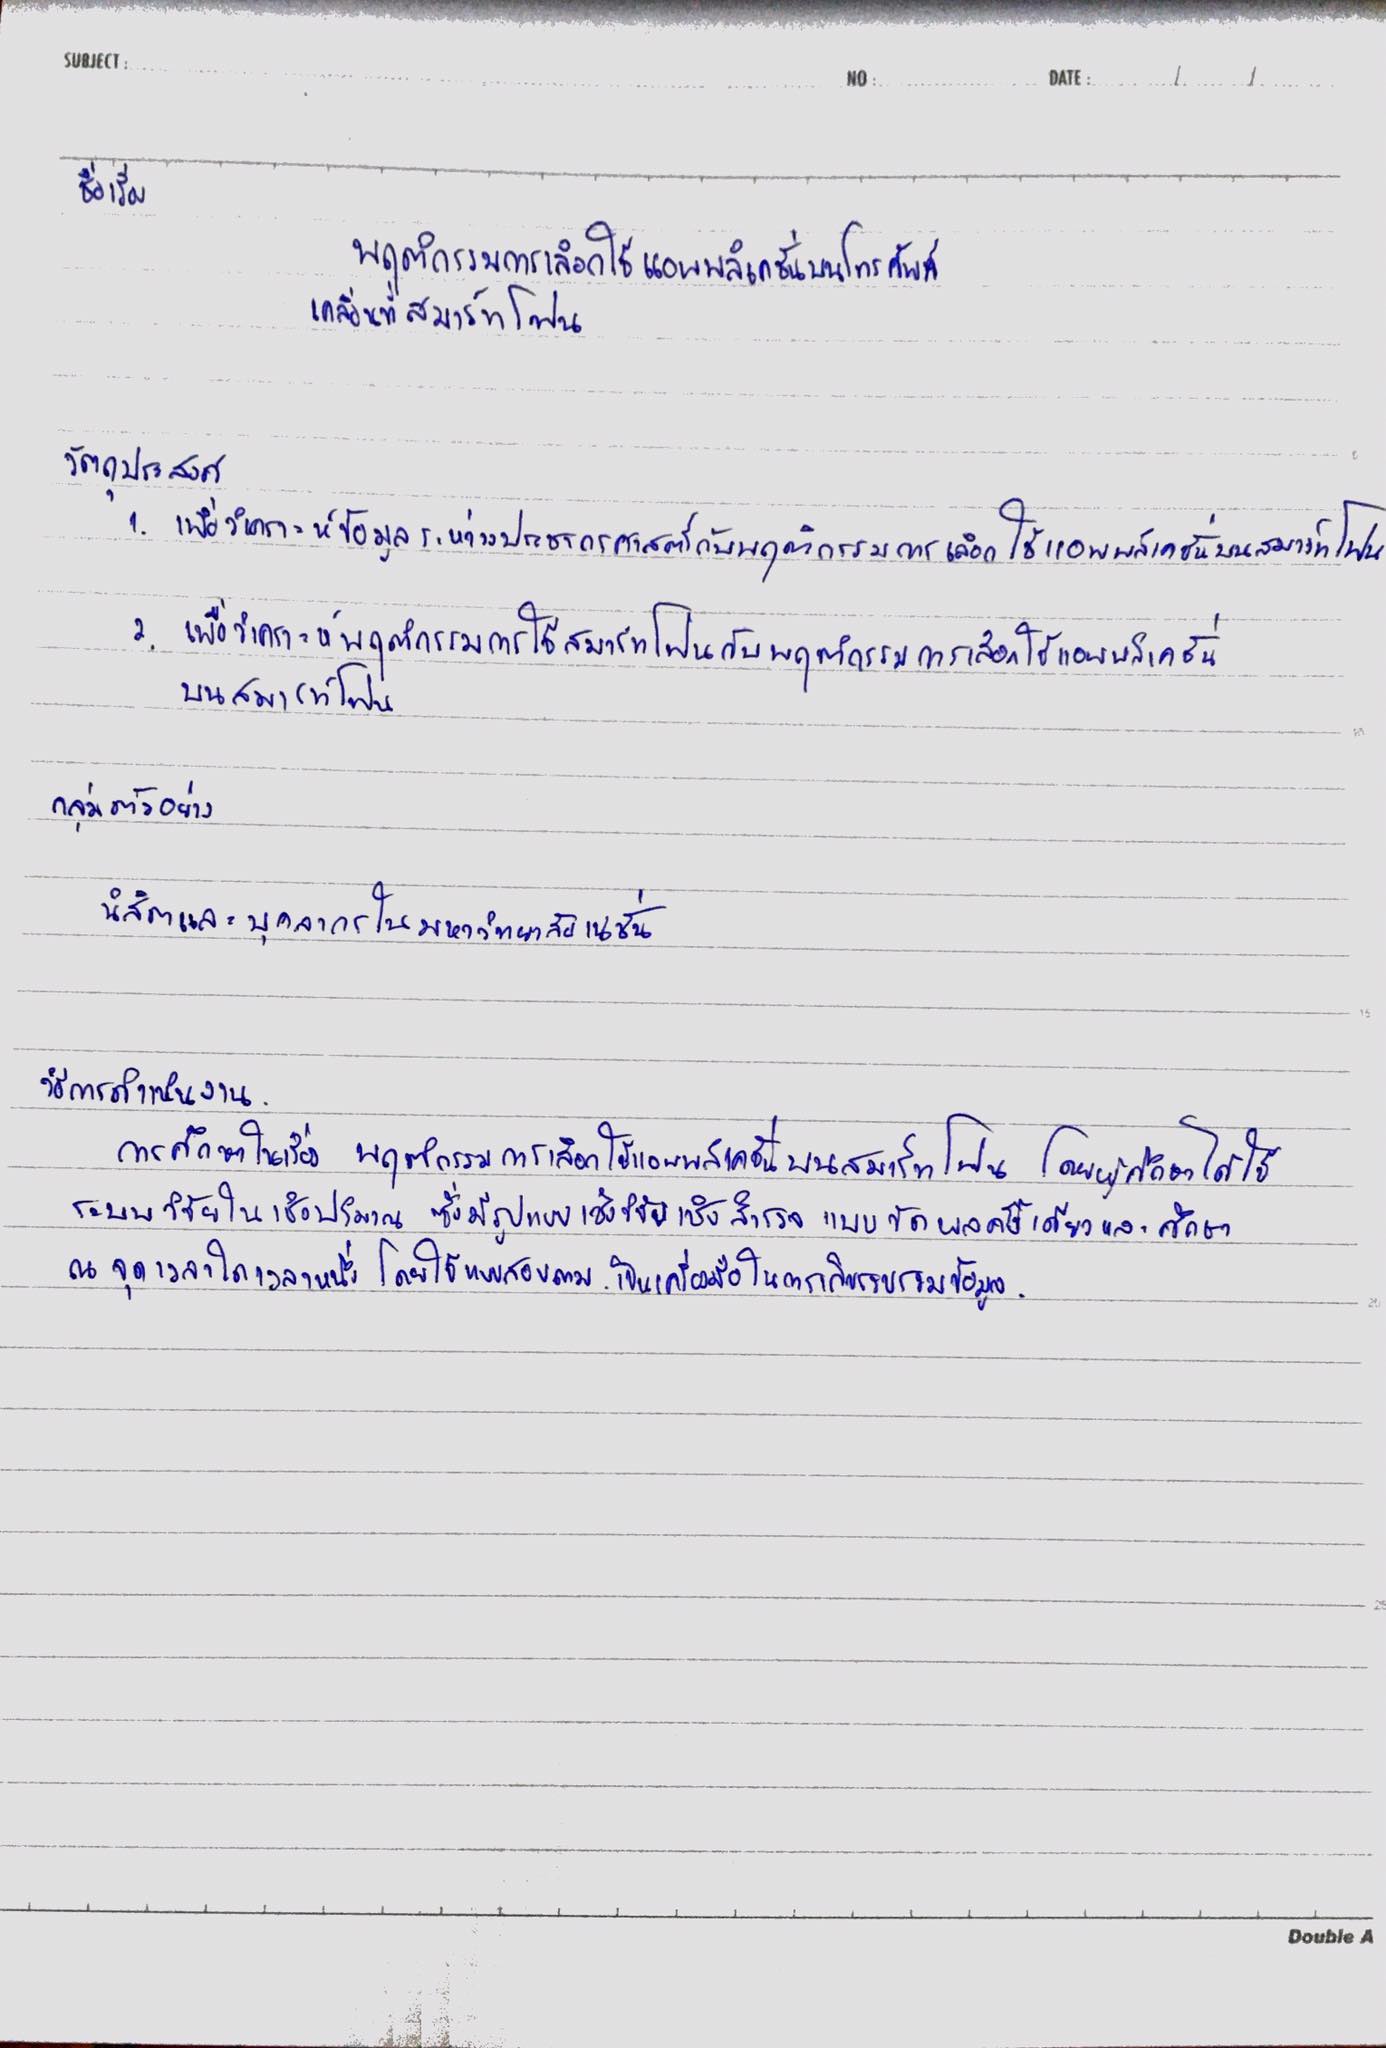 SUBJECT :
NO :
DATE : / /
ชื่อเรื่อง
พฤติกรรมการเลือกใช้แอพพลิเคชั่นบนโทรศัพท์
เคลื่อนที่สมาร์ทโฟน
วัตถุประสงค์
1. เพื่อวิเคราะห์ข้อมูลระหว่างประชากรศาสตร์กับพฤติกรรมการเลือกใช้แอพพลิเคชั่นบนสมาร์ทโฟน
2. เพื่อวิเคราะห์พฤติกรรมการใช้สมาร์ทโฟนกับพฤติกรรมการเลือกใช้แอพพลิเคชั่น
บนสมาร์ทโฟน
กลุ่มตัวอย่าง
นิสิตและบุคลากรในมหาวิทยาลัยเนชั่น
วิธีการดำเนินงาน.
การศึกษาในเรื่อง พฤติกรรมการเลือกใช้แอพพลิเคชั่นบนสมาร์ทโฟน โดยผู้ศึกษาได้ใช้
ระบบวิจัยในเชิงปริมาณ ซึ่งมีรูปแบบเชิงวิจัยเชิงสำรวจ แบบวัดผลครั้งเดียวและศึกษา
ณ จุดเวลาใดเวลาหนึ่ง โดยใช้แบบสอบถามเป็นเครื่องมือในการเก็บรวบรวมข้อมูล.
15
20
25
Double A